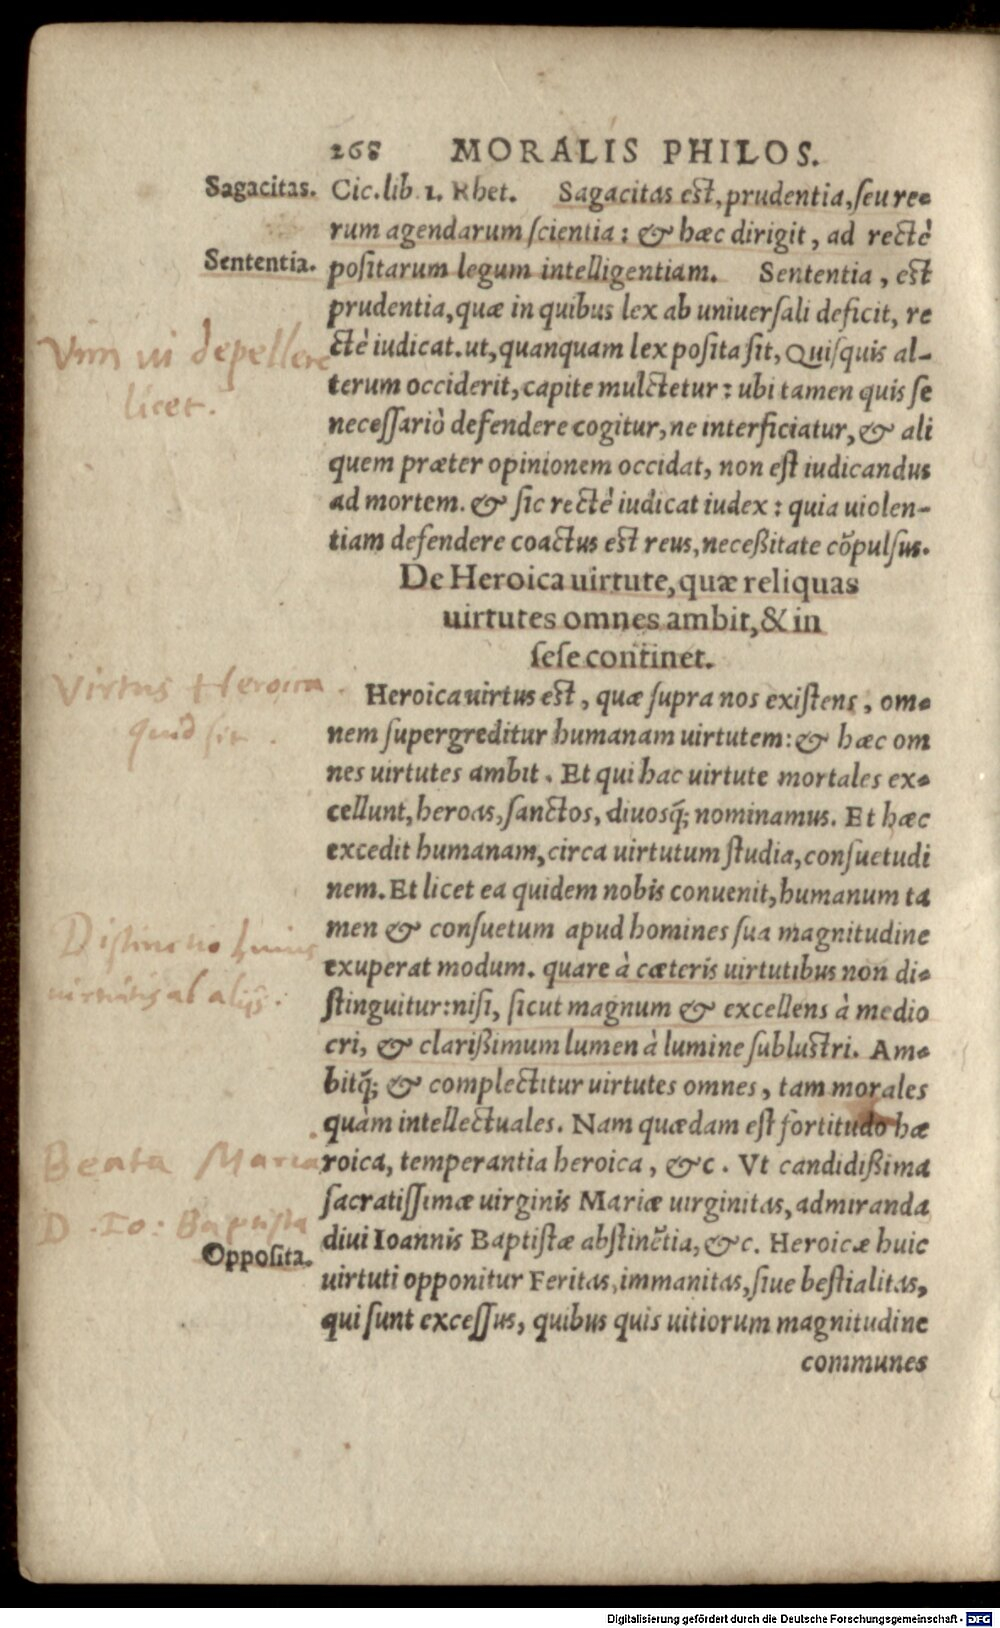 268 MORALIS PHILOS.
Sagacitas. Cic. lib. 1. Rhet. Sagacitas est, prudentia, seu re-
rum agendarum scientia: & hæc dirigit, ad rectè
Sententia. positarum legum intelligentiam. Sententia, est
prudentia, quæ in quibus lex ab uniuersali deficit, re
Vim vi depellere
licet.
ctè iudicat. ut, quanquam lex posita sit, Quisquis al-
terum occiderit, capite mulctetur: ubi tamen quis se
necessariò defendere cogitur, ne interficiatur, & ali
quem præter opinionem occidat, non est iudicandus
ad mortem. & sic rectè iudicat iudex: quia uiolen-
tiam defendere coactus est reus, necessitate cõpulsus.
De Heroica uirtute, quæ reliquas
uirtutes omnes ambit, & in
sese continet.
Virtus Heroica
quid sit.
Heroica uirtus est, quæ supra nos existens, om-
nem supergreditur humanam uirtutem: & hæc om
nes uirtutes ambit. Et qui hac uirtute mortales ex-
cellunt, heroas, sanctos, diuosq́; nominamus. Et hæc
excedit humanam, circa uirtutum studia, consuetudi
nem. Et licet ea quidem nobis conuenit, humanum ta
Distinctio huius
uirtutis ab alijs.
men & consuetum apud homines sua magnitudine
exuperat modum. quare à cæteris uirtutibus non di-
stinguitur: nisi, sicut magnum & excellens à medio
cri, & clarissimum lumen à lumine sublustri. Am-
bitq́; & complectitur uirtutes omnes, tam morales
quàm intellectuales. Nam quædam est fortitudo hæ
Beata Maria
roica, temperantia heroica, &c. Vt candidissima
sacratissimæ uirginis Mariæ uirginitas, admiranda
D. Io: Baptista
diui Ioannis Baptistæ abstinẽtia, &c. Heroicæ huic
Opposita. uirtuti opponitur Feritas, immanitas, siue bestialitas,
qui sunt excessus, quibus quis uitiorum magnitudine
communes
Digitalisierung gefördert durch die Deutsche Forschungsgemeinschaft - DFG